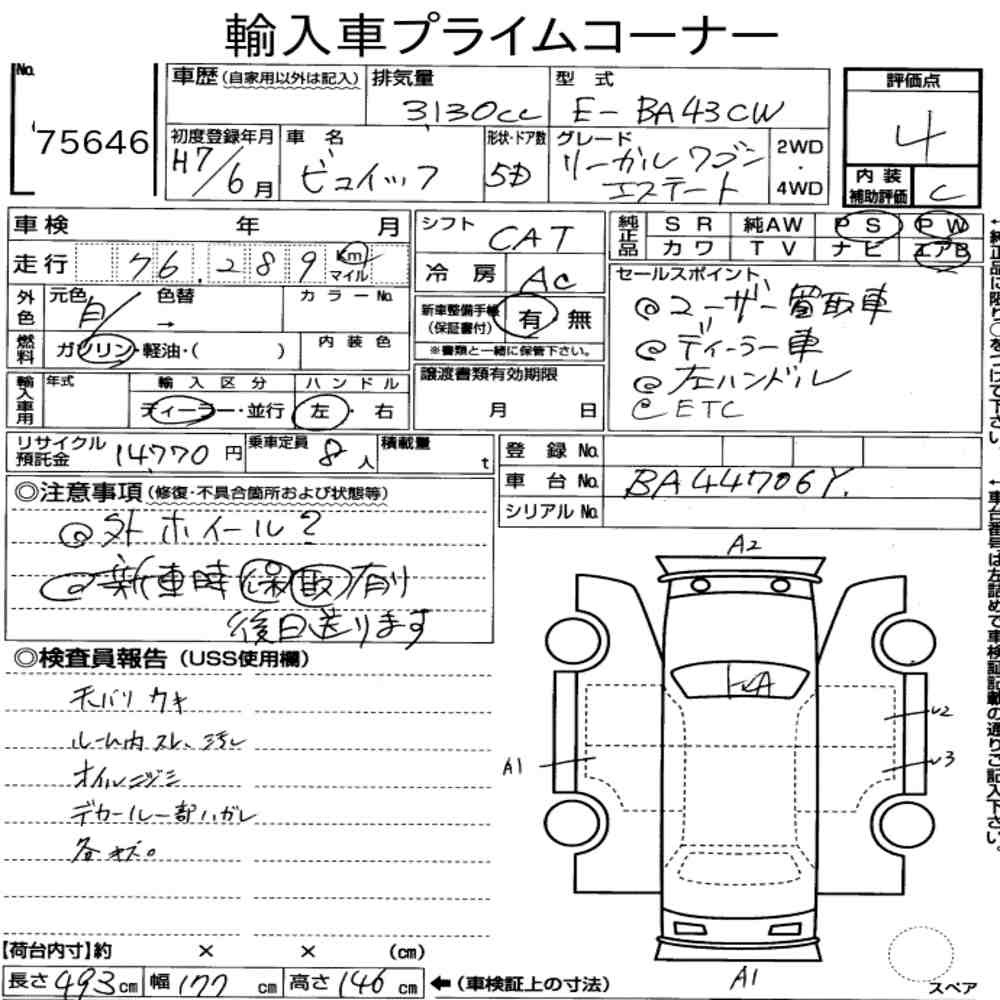 輸入車プライムコーナー
No.
75646
車歴(自家用以外は記入)
排気量
3,130cc
型式
E-BA43CW
評価点
4
初度登録年月
H7/6月
車名
ビュイック
形状・ドア数
5D
グレード
リーガル ワゴン
エステート
2WD
・
4WD
内装
補助評価
C
車検 年 月
走行 76,289 Km マイル
外色 元色 白/ 色替 → カラーNo.
燃料 ガソリン・軽油・( ) 内装色
輸入車用 年式 輸入区分 ハンドル
ディーラー・並行 左・右
シフト CAT
冷房 AC
新車整備手帳
(保証書付)
有 無
※書類と一緒に保管下さい。
譲渡書類有効期限
月 日
純正品 SR 純AW PS PW
カワ TV ナビ エアB
セールスポイント
@ユーザー買取車
@ディーラー車
@左ハンドル
@ETC
←純正品に限り○をつけて下さい。
リサイクル
預託金 14,770円
乗車定員 8人
積載量 t
登録No.
車台No. BA44706Y.
シリアルNo.
←車台番号は左詰めで車検証記載の通りご記入下さい。
◎注意事項(修復・不具合箇所および状態等)
@外ホイール2
@新車時保取有り
後日送ります
◎検査員報告(USS使用欄)
天バリ ウキ
ルーム内スレ、汚レ
オイルニジミ
デカール一部ハガレ
各キズ。
A2
A
A1
U2
U3
A1
スペア
【荷台内寸】約 × × (cm)
長さ493cm 幅177cm 高さ146cm ←(車検証上の寸法)